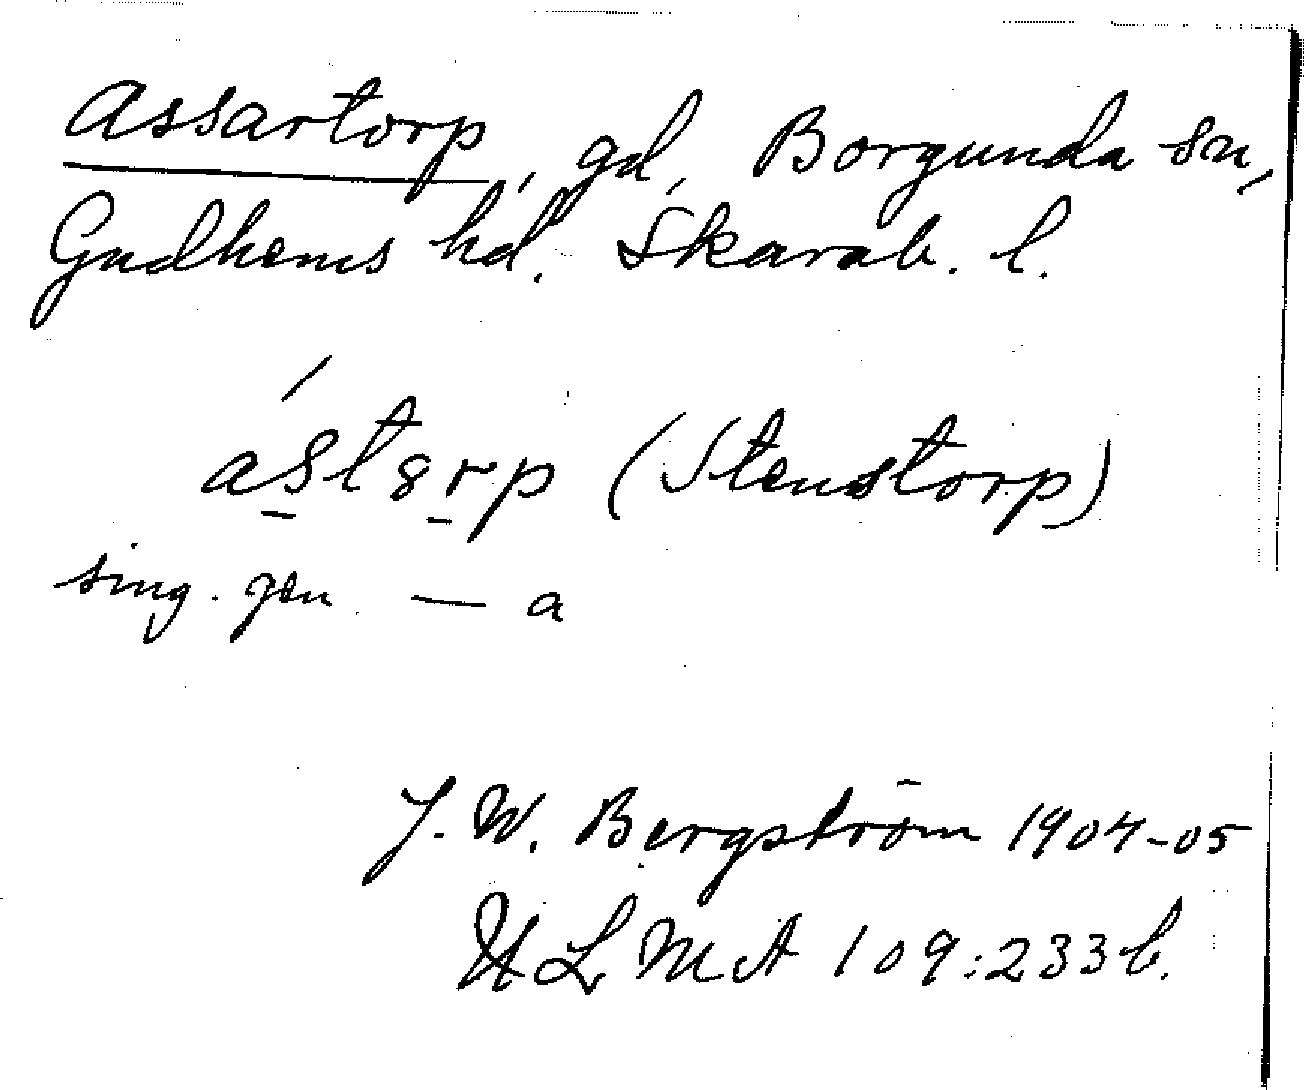 Assartorp, gd, Borgunda sn,
Gudhems hd. Skarab. l.
ás̱tȣṟp (Stenstorp)
sing. gen. — a
J. W. Bergström 1904-05
ULMA 109:233 b.